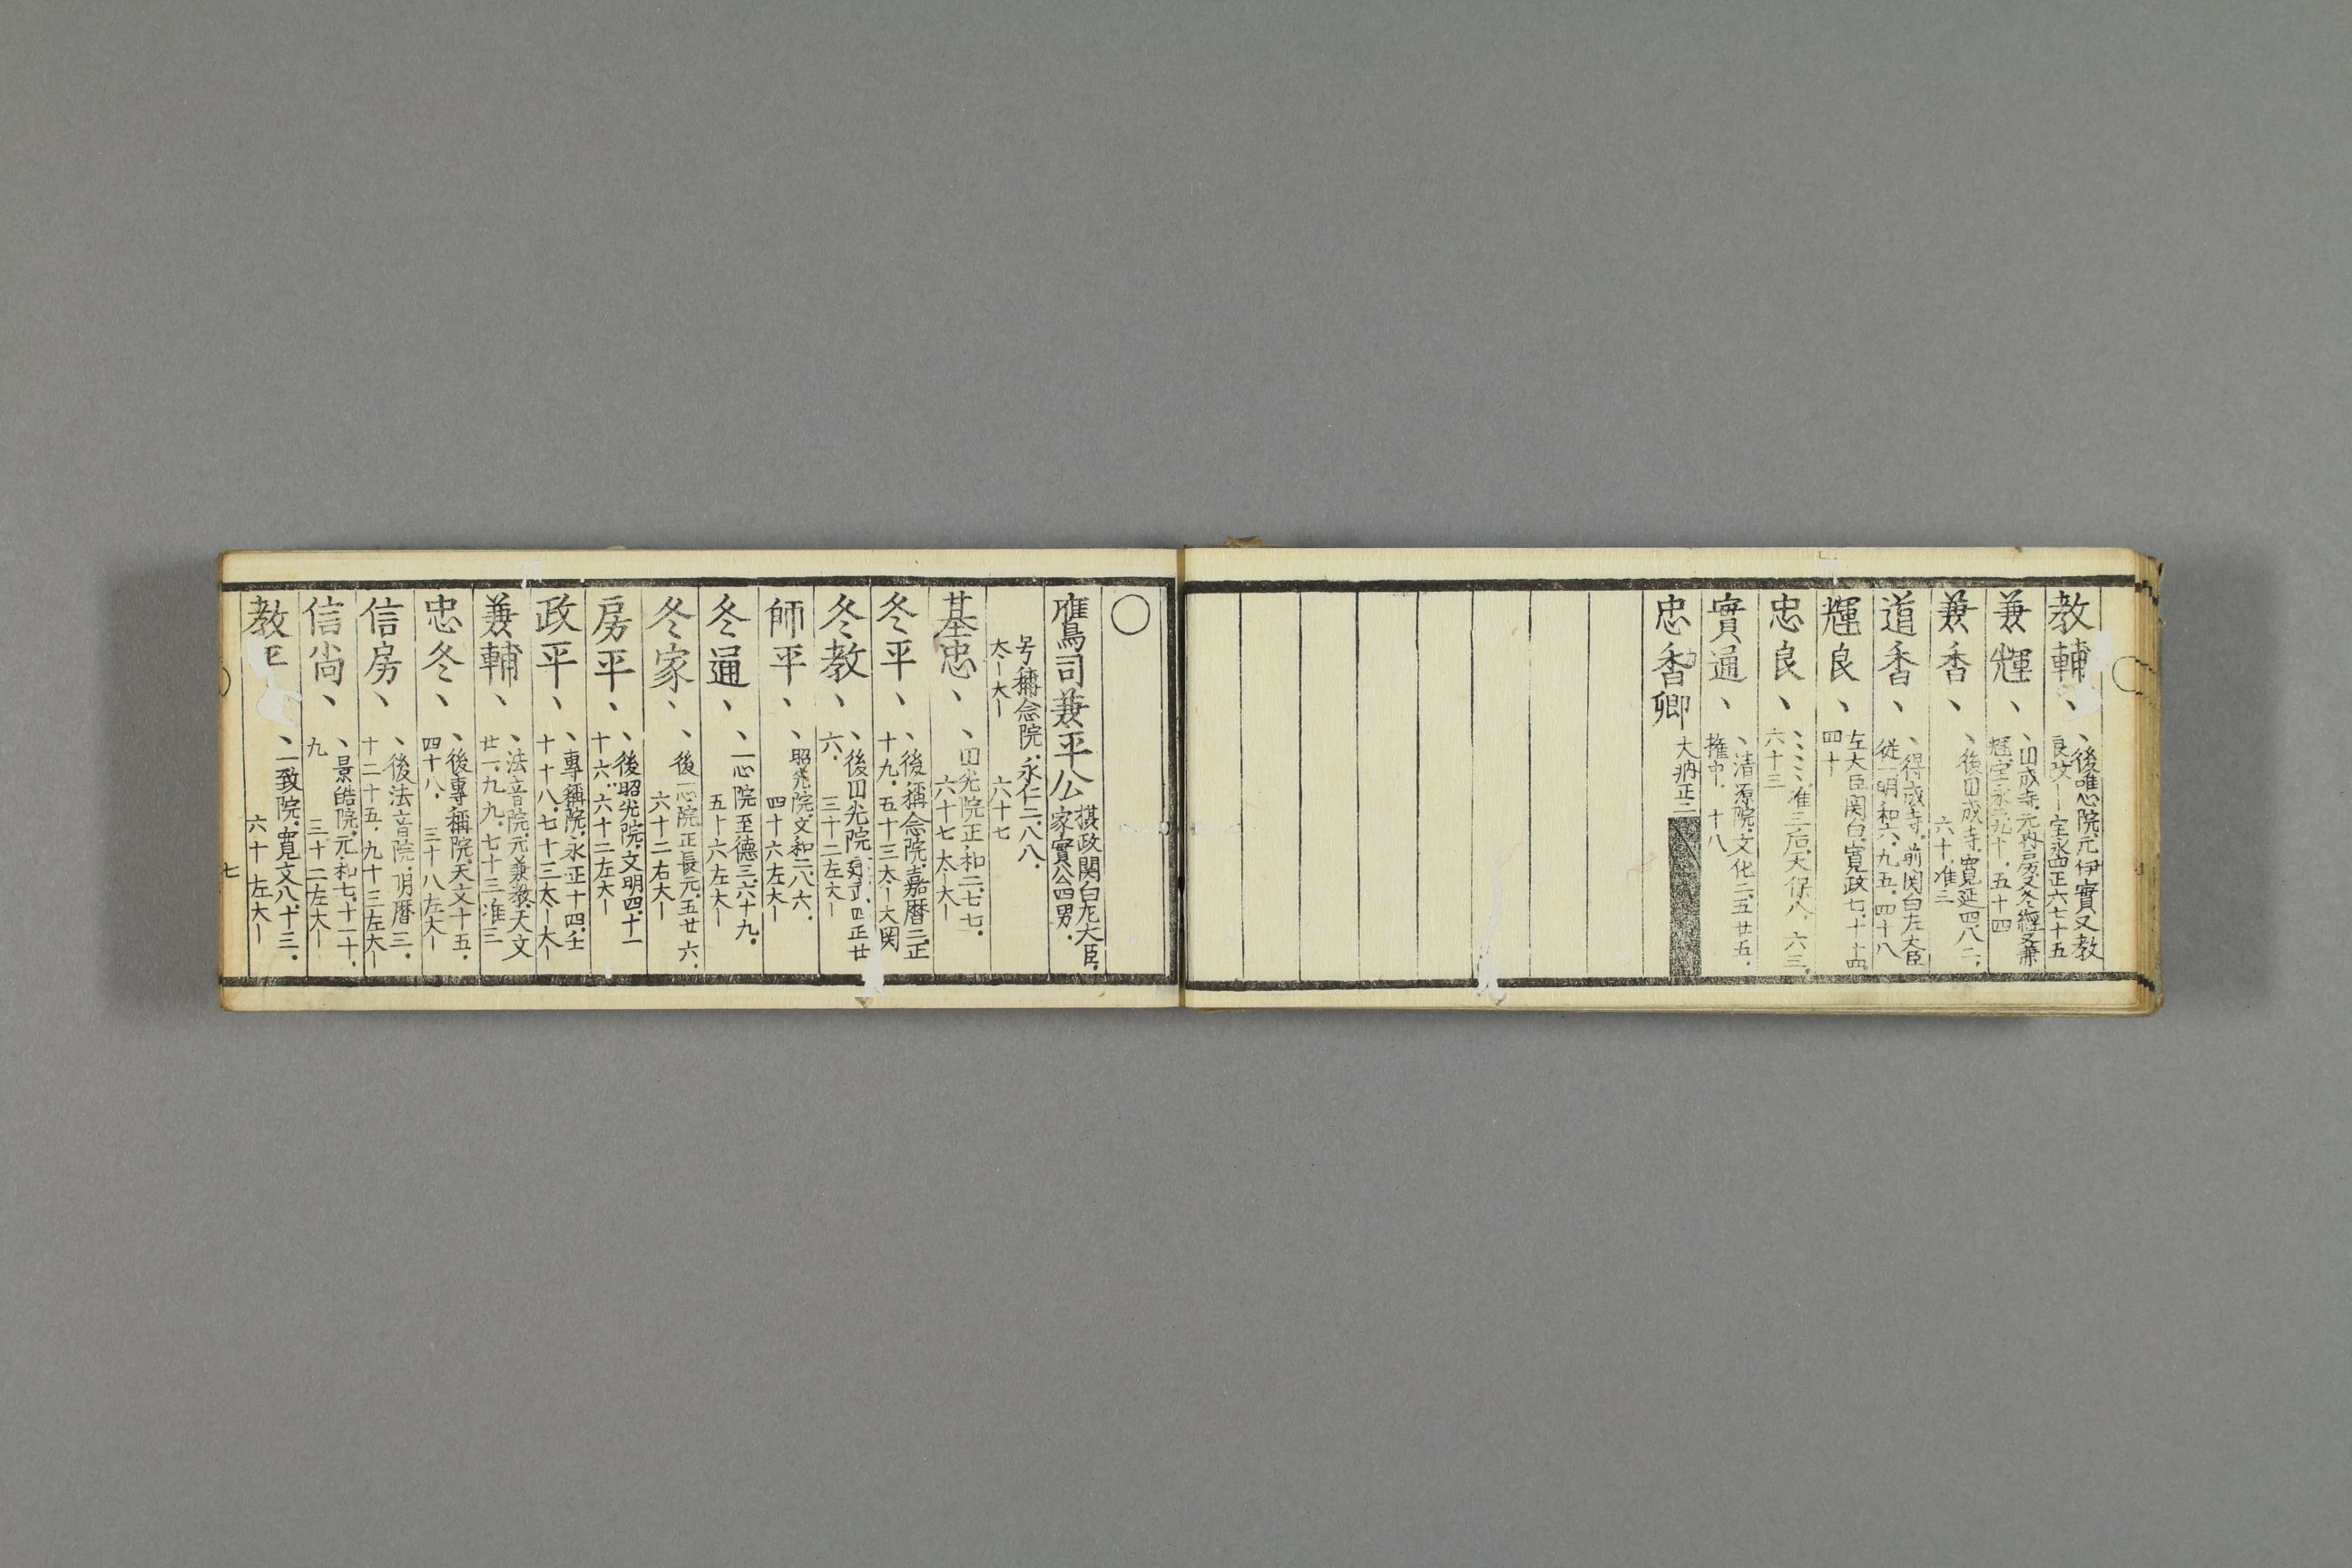 教輔、、後唯心院、元伊實又教
良又—宝永四正六七十五
兼輝、、囬成寺、元内房又冬經又兼
熈、宝永二九十、五十四
兼香、、後囬成寺、寬延四、八二、
六十、准三
道香、、得成寺、前関白左大臣
從一明和六、九五、四十八
輝良、左大臣関白、寬政七、十十四
四十
忠良、、、、、准三后、天保八、六三、
六十三
實通、、清源院、文化二、五廿五、
権中、十八
忠香卿 大納正二
〇
鷹司兼平公 摂政関白左大臣、
家實公四男、
号稱念院、永仁二、八八、
太—大— 六十七
基忠、、囬光院正和二、七七、
六十七太—大—
冬平、、後稱念院、嘉暦二、正
十九、五十三太—大関
冬教、、後囬光院、建武四正廿
六、三十二左大—
師平、、昭光院、文和二、八六、
四十六左大—
冬通、、一心院至徳三、六十九、
五十六左大—
冬家、、後一心院正長元、五廿六、
六十二右大—
房平、、後昭光院、文明四、十一
十六、六十二左大—
政平、、專稱院、永正十四、壬
十十八、七十三太—大—
兼輔、、法音院、元兼教、天文
廿一、九九、七十三准三
忠冬、、後專稱院、天文十五、
四十八、三十八左大—
信房、、後法音院、明暦三、
十二十五、九十三左大—
信尚、、景皓院、元和七、十一十、
九 三十二左大—
教平、一致院、寬文八、十三、
六十 左大—
七